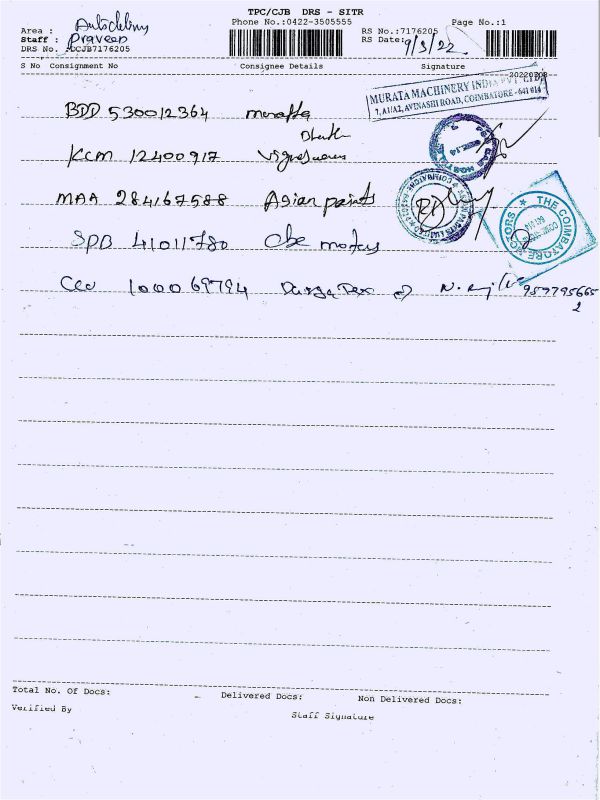 TPC/CJB DRS - SITR
Phone No.:0422-3505555 Page No.:1
Area :
Staff : Praveen
RS No.:7176205
DRS No. :DCJB7176205
RS Date: 9/3/22
S No Consignment No Consignee Details Signature
MURATA MACHINERY INDIA PVT. LTD.
AVINASHI ROAD, COIMBATORE - 641 014
BDD 530012364 muratta
KCM 12400917
MAA 284167588 Asian paints
SPB 41011780 Cbe motors
THE COIMBATORE MOTORS
100069794
Total No. Of Docs: Delivered Docs: Non Delivered Docs:
Verified By Staff Signature